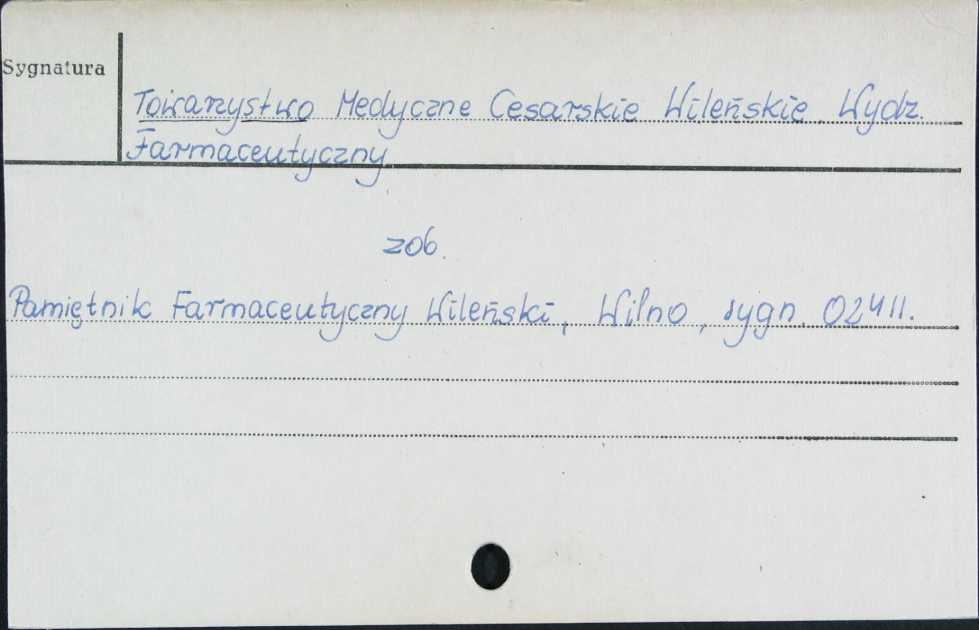 Sygnatura
Towarzystwo Medyczne Cesarskie Wileńskie. Wydz.
Farmaceutyczny
zob.
Pamiętnik Farmaceutyczny Wileński, Wilno, sygn. 02411.